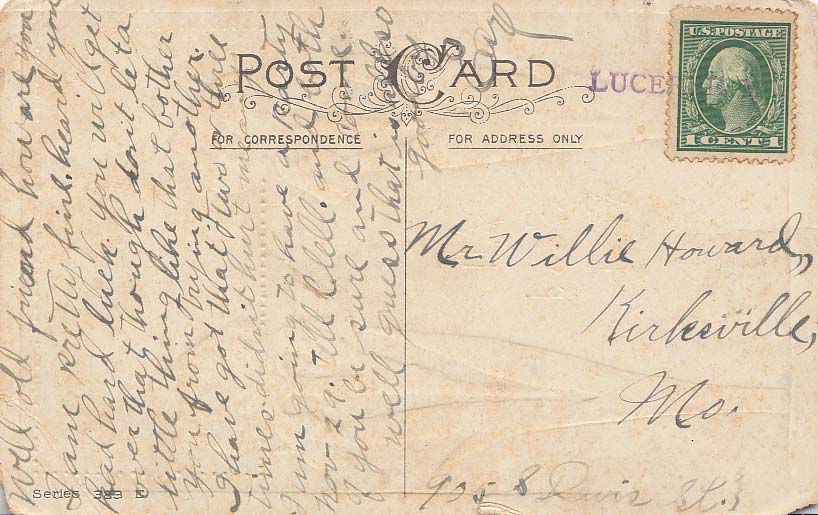 POST CARD
FOR CORRESPONDENCE
FOR ADDRESS ONLY
U.S. POSTAGE
1 CENT 1
Well old friend how are you
I am pretty fine. heard you
had hard luck. You will get
over that though don't le ta
little thing like that bother
you from trying another.
I have got that two three
times didn't hurt me any
I'm going to have a party
nov-29. Tell Clell and Ruth
& you be sure and come.
well guess that is all so
good by
Mr Willie Howard,
Kirksville,
Mo.
905 S Davis St.
Series 333 E